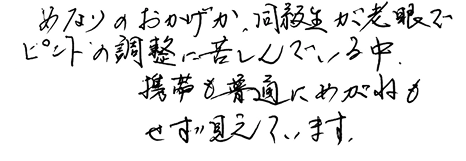 めなりのおかげか、同級生が老眼で
ピントの調整に苦しんでいる中、
携帯も普通にめがねも
せず見えています。